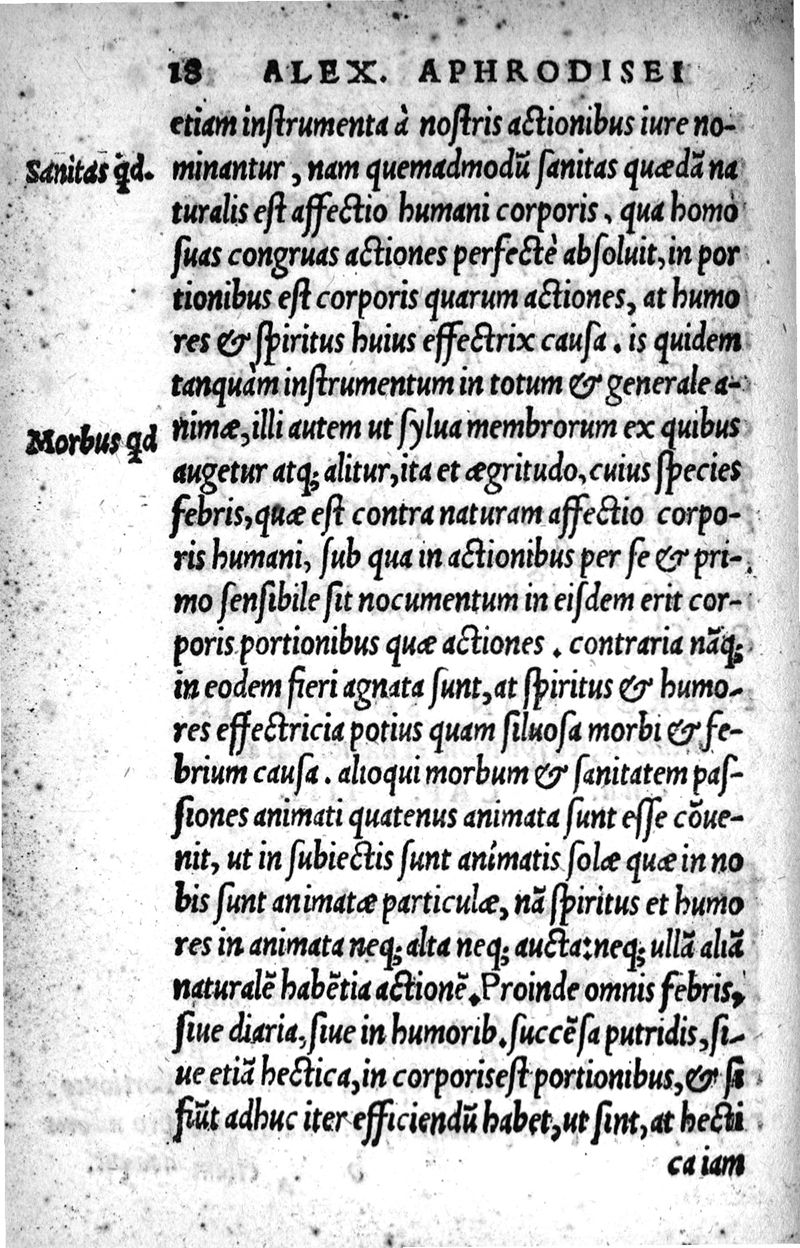 18 ALEX. APHRODISEI
etiam inſtrumenta à noſtris actionibus iure no-
Sanitas qd.
minantur, nam quemadmodũ ſanitas quædã na
turalis eſt affectio humani corporis, qua homo
ſuas congruas actiones perfectè abſoluit, in por
tionibus eſt corporis quarum actiones, at humo
res & ſpiritus huius effectrix cauſa. is quidem
tanquàm inſtrumentum in totum & generale a-
Morbus qd
nimæ, illi autem ut ſylua membrorum ex quibus
augetur atq; alitur, ita et ægritudo, cuius ſpecies
febris, quæ eſt contra naturam affectio corpo-
ris humani, ſub qua in actionibus per ſe & pri-
mo ſenſibile ſit nocumentum in eiſdem erit cor-
poris portionibus quæ actiones. contraria nãq;
in eodem fieri agnata ſunt, at ſpiritus & humo-
res effectricia potius quam ſiluoſa morbi & fe-
brium cauſa. alioqui morbum & ſanitatem paſ-
ſiones animati quatenus animata ſunt eſſe cõue-
nit, ut in ſubiectis ſunt animatis ſolæ quæ in no
bis ſunt animatæ particulæ, nã ſpiritus et humo
res in animata neq; alta neq; aucta: neq; ullã aliã
naturalẽ habẽtia actionẽ. Proinde omnis febris,
ſiue diaria, ſiue in humorib. ſuccẽſa putridis, ſi-
ue etiã hectica, in corporis eſt portionibus, & ſi
fiũt adhuc iter efficiendũ habet, ut ſint, at hecti
ca iam